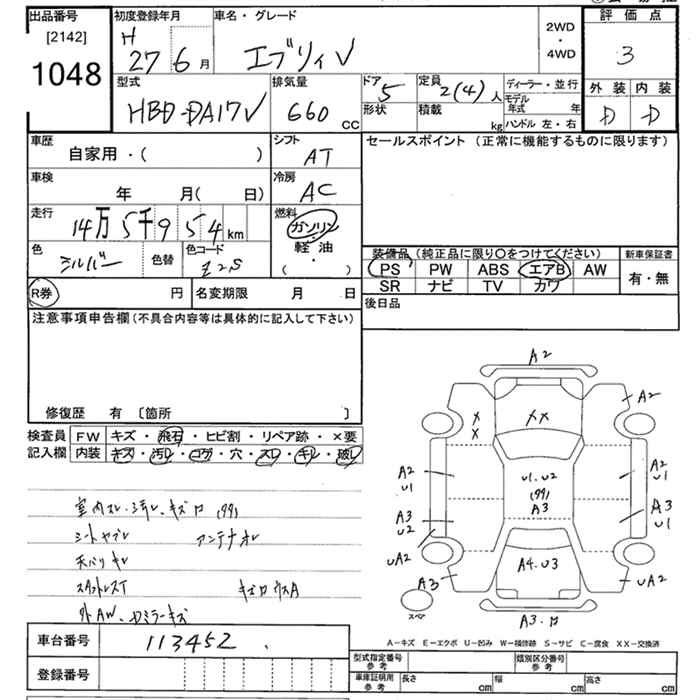 出品番号 初度登録年月 車名・グレード 評価点
[2142] H 2WD
1048 27年 6月 エブリィV ・ 3
4WD
型式 排気量 ドア 定員 ディーラー・並行 外装 内装
HBD-DA17V 660 CC 5 2(4)人 モデル年式 年 D D
形状 積載 kg ハンドル 左・右
車歴 シフト セールスポイント (正常に機能するものに限ります)
自家用・( ) AT
車検 冷房
年 月( 日) AC
走行 燃料
14万5千954km ガソリン
軽油
色 色替 色コード ( )
シルバー Z2S
装備品(純正品に限り○をつけてください) 新車保証書
PS PW ABS エアB AW 有・無
SR ナビ TV カワ
R券 円 名変期限 月 日 後日品
注意事項申告欄(不具合内容等は具体的に記入して下さい)
修復歴 有 〔箇所 〕
検査員 FW キズ・飛石・ヒビ割・リペア跡・×要
記入欄 内装 キズ・汚レ・コゲ・穴・スレ・キレ・破レ
室内スレ・汚レ・キズ
シートヤブレ アンテナオレ
天バリキレ
スタットレスT
外AW
A2
A2
XX
X
X
A2 U1 U1.U2 A2 U1
(99)
A3
A3 U2 A3 U1
UA2
A4.U3
A3 UA2
スペア
A3
A-キズ E-エクボ U-凹み W-補修跡 S-サビ C-腐食 XX-交換済
車台番号 113452
登録番号
型式指定番号 参考 類別区分番号 参考
車庫証明用 参考 長さ cm 幅 cm 高さ cm